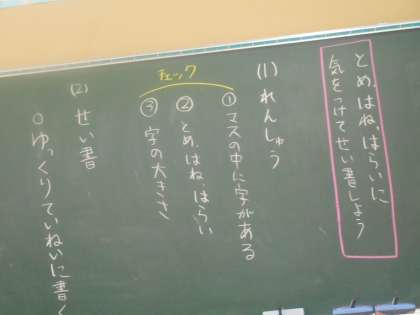 とめ、はね、はらいに
気をつけてせい書しよう
(1) れんしゅう
チェック
① マスの中に字がある
② とめ、はね、はらい
③ 字の大きさ
(2) せい書
○ゆっくりていねいに書く